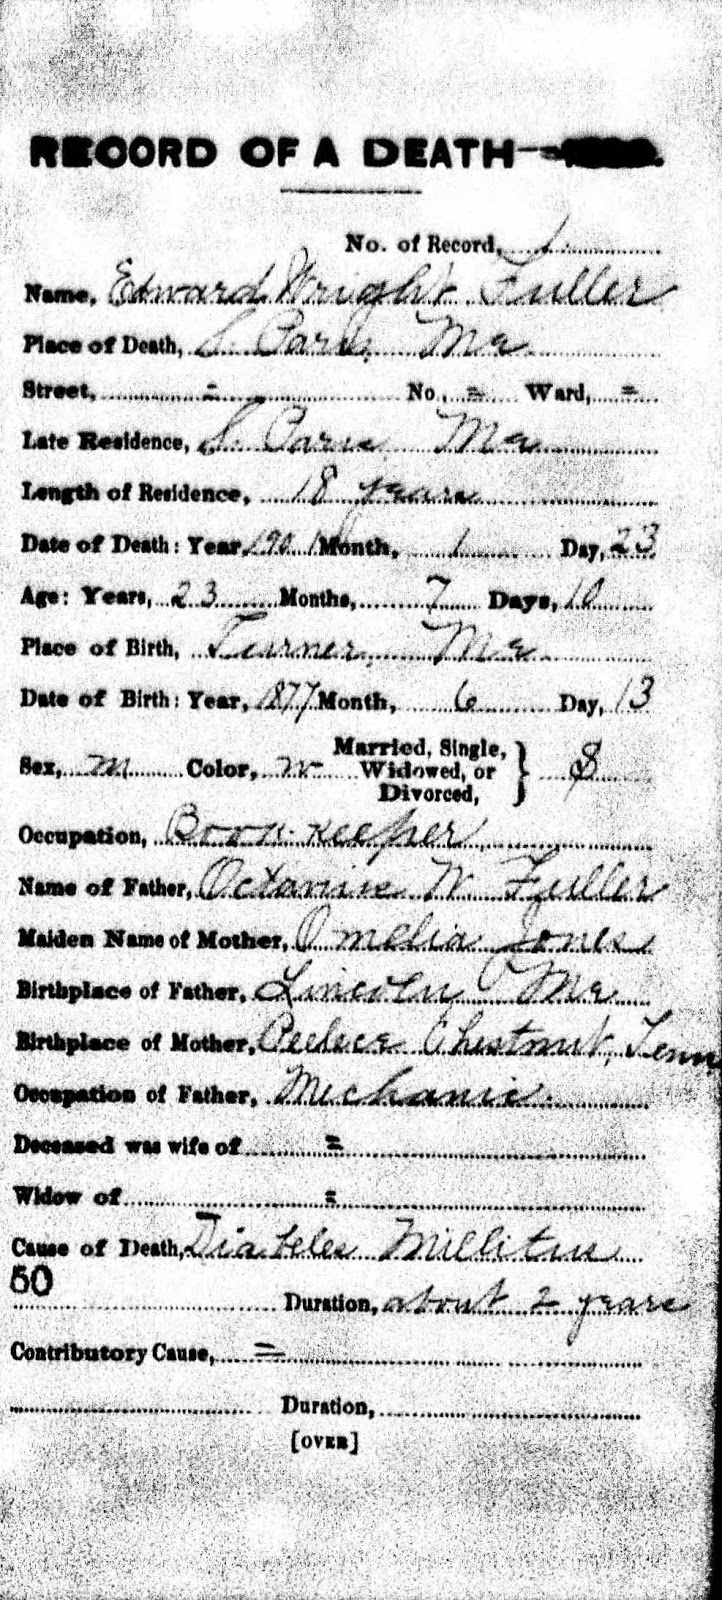 RECORD OF A DEATH
No. of Record, 1
Name, Edward Wright Fuller
Place of Death, S. Paris, Me
Street, = No., = Ward, =
Late Residence, S. Paris, Me
Length of Residence, 18 years
Date of Death: Year, 1901 Month, 1 Day, 23
Age: Years, 23 Months, 7 Days, 10
Place of Birth, Turner, Me
Date of Birth: Year, 1877 Month, 6 Day, 13
Sex, m Color, w Married, Single, Widowed, or Divorced, } S
Occupation, Book-keeper
Name of Father, Octavius W. Fuller
Maiden Name of Mother, Omelia Jones
Birthplace of Father, Lincoln Me
Birthplace of Mother, Chestnut, Tenn
Occupation of Father, Mechanic
Deceased was wife of =
Widow of =
Cause of Death, Diabetes Millitus
50
Duration, about 2 years
Contributory Cause, =
Duration,
[OVER]